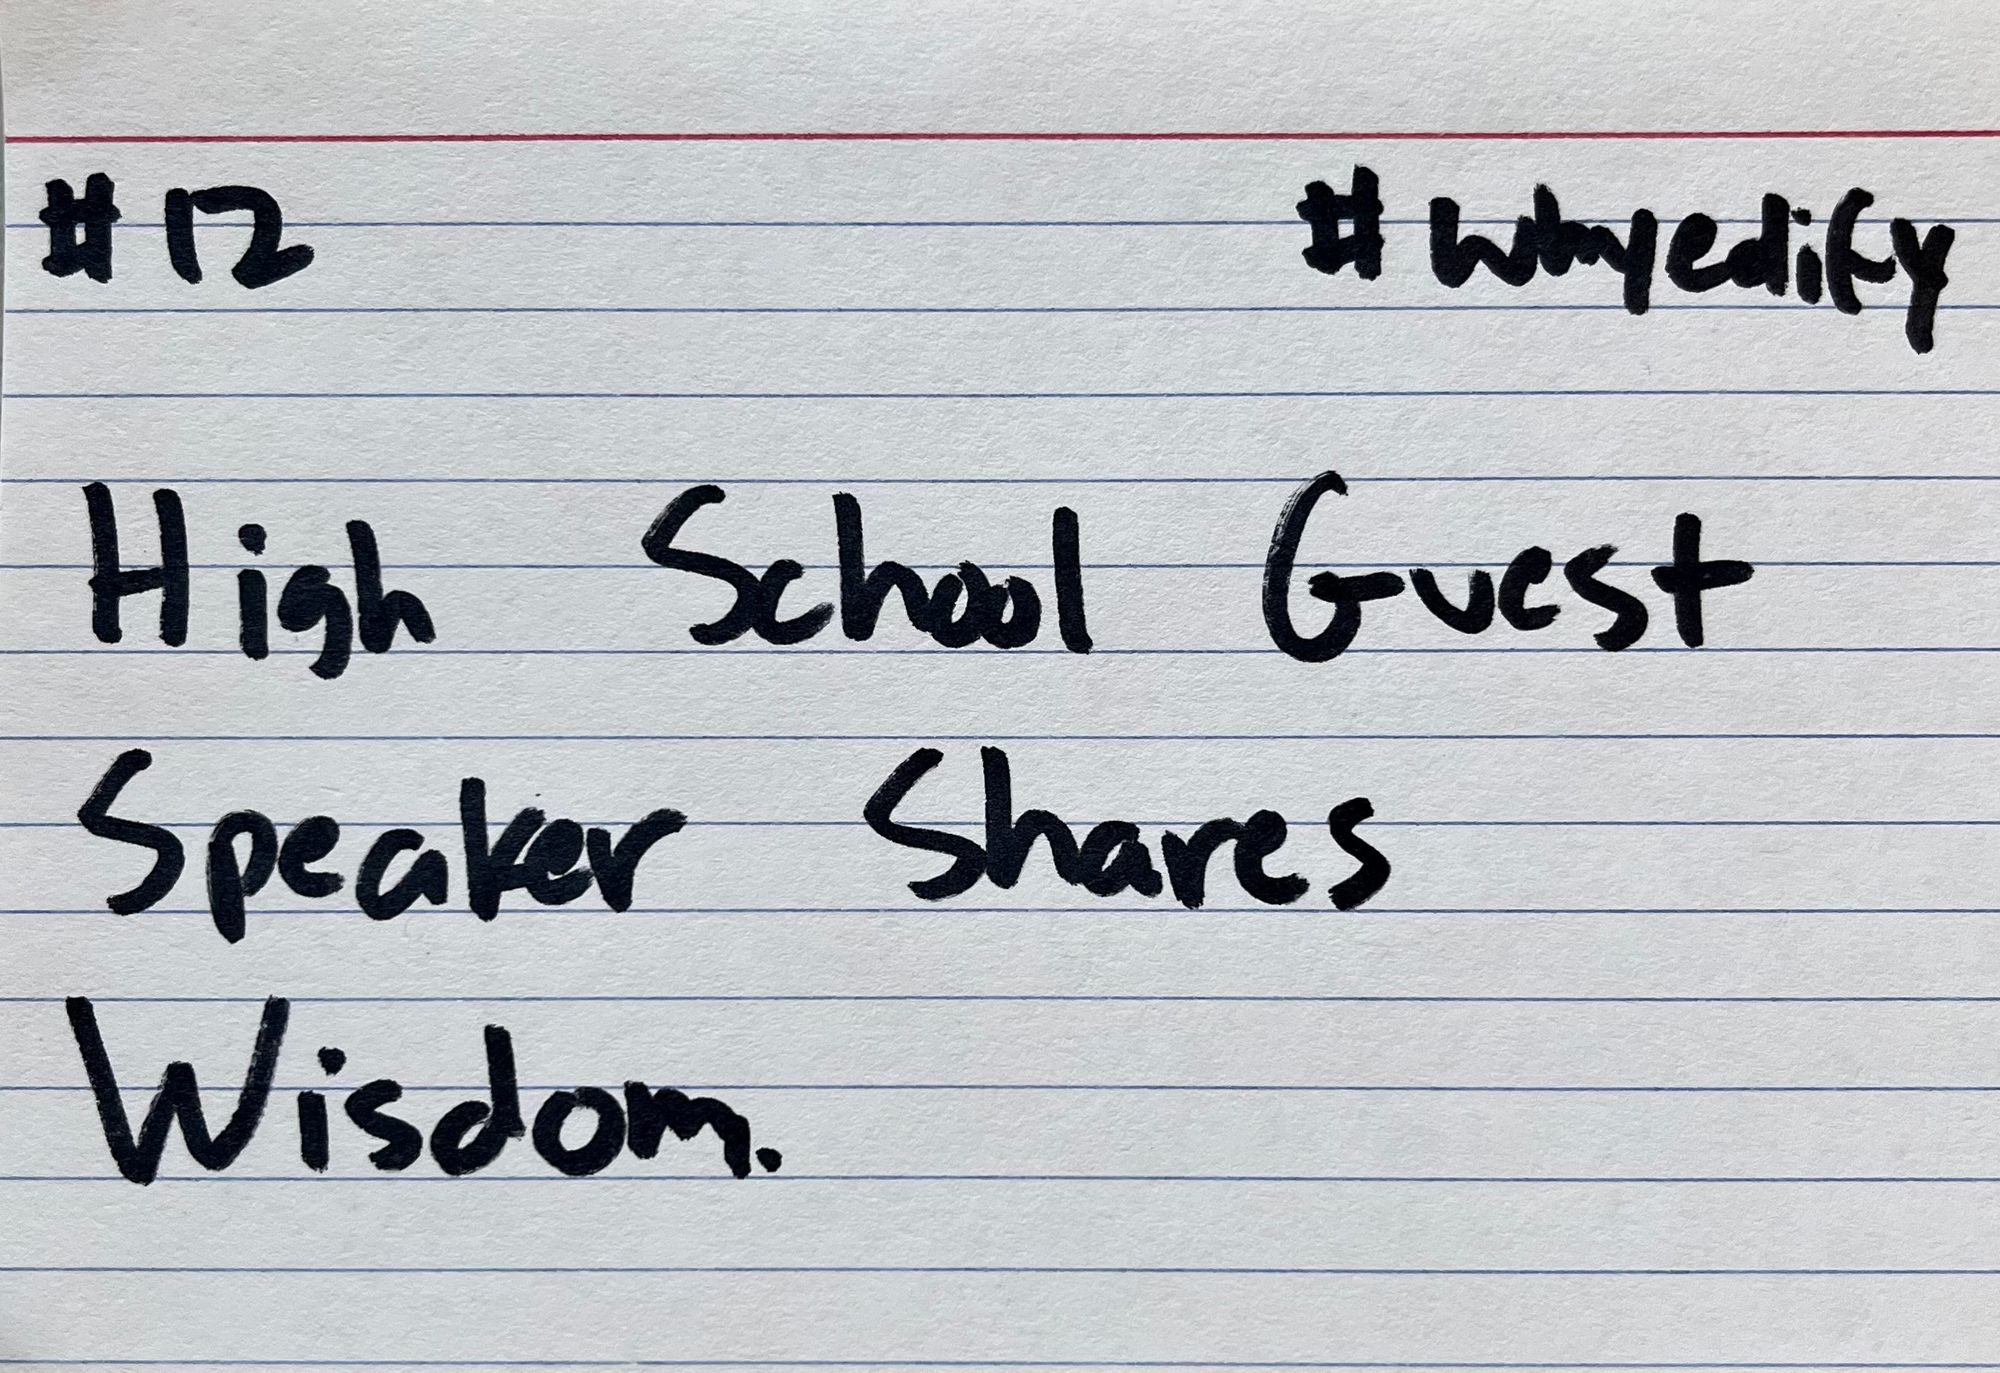 #12 #whyedify
High School Guest
Speaker Shares
Wisdom.